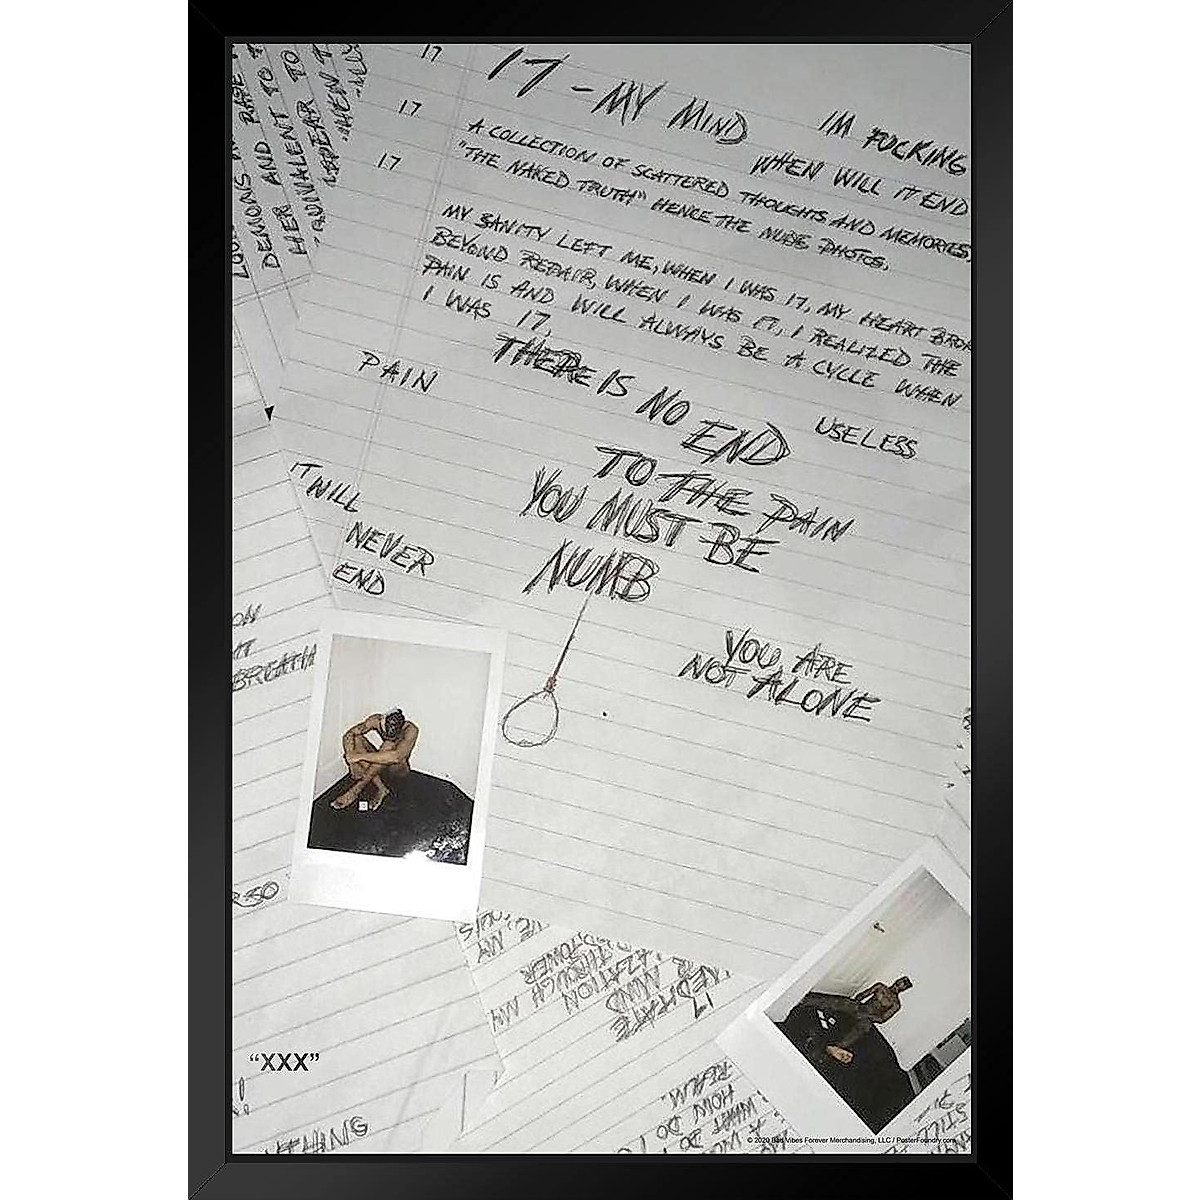 17
17 - MY MIND
IM FUCKING
17
WHEN WILL IT END
A COLLECTION OF SCATTERED THOUGHTS AND MEMORIES,
17
"THE NAKED TRUTH" HENCE THE NUDE PHOTOS,
MY SANITY LEFT ME, WHEN I WAS 17, MY HEART BROK
BEYOND REPAIR, WHEN I WAS 17, I REALIZED THE
PAIN IS AND WILL ALWAYS BE A CYCLE WHEN
I WAS 17,
THERE IS NO END
PAIN
USELESS
TO THE PAIN
YOU MUST BE
NUMB
IT WILL
NEVER
END
YOU ARE
NOT ALONE
DEMONS
DEMON AND TO
HER
EQUIVALENT TO
BREATH
THROUGH MY
MIND
17
REALM.
HOW DO I
WHAT DO
“XXX”
© 2020 Bad Vibes Forever Merchandising, LLC / PosterFoundry.com